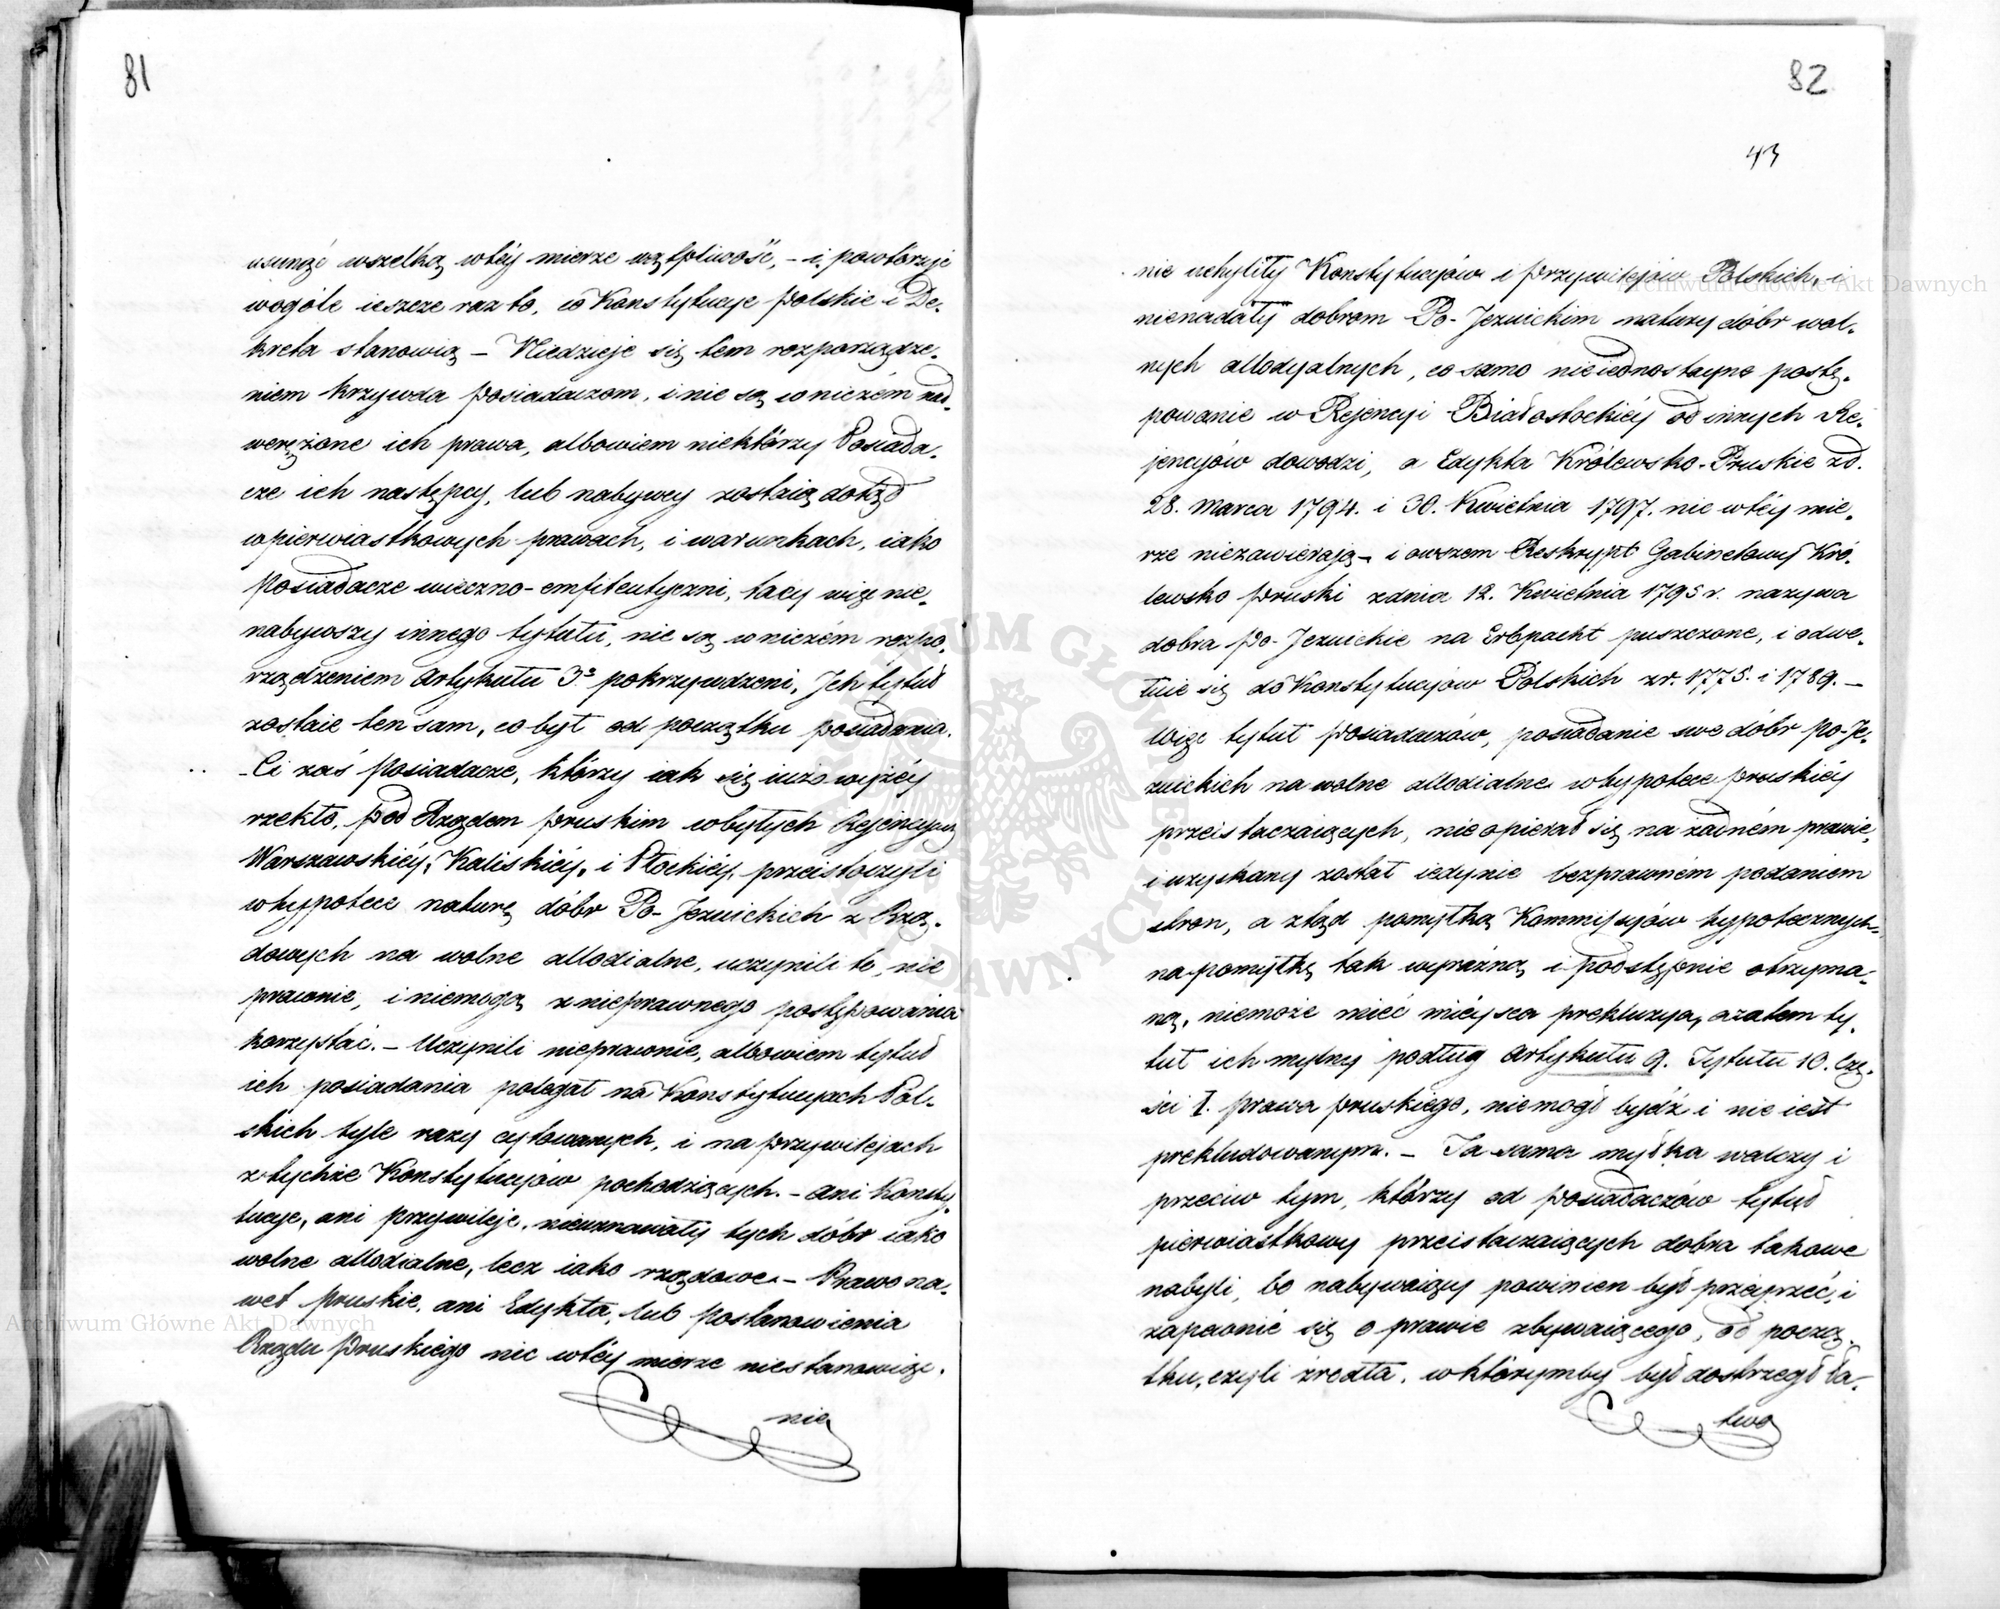 81
usunąć wszelką wtéy mierze wątpliwość, – i powtórzyć
wogóle ieszcze raz to, co Konstytucye polskie i De-
kreta stanowią – Niedzieje się tem rozporządze-
niem krzywda posiadaczom, i nie są wniczém nad-
werężone ich prawa, albowiem niektórzy Posiada-
cze ich następcy, lub nabywcy zostaią dotąd
wpierwiastkowych prawach, i warunkach, iako
posiadacze wieczno-emfiteutyczni, tacy więc nie-
nabywszy innego tytułu, nie są wniczém rozpo-
rządzeniem Artykułu 3º pokrzywdzeni, Ich tytuł
zostaie ten sam, co był od początku posiadania.
Ci zaś posiadacze, którzy iak się iuż wyżéy
rzekło, pod Rządem pruskim wbyłych Rejencyach
Warszawskiéy, Kaliskiéy, i Płockiéy, przeistoczyli
whypotece naturę dóbr Po-Jezuickich z Rzą-
dowych na wolne allodialne, uczynili to, nie
prawnie, i niemogą znieprawnego postępowania
korzystać. – Uczynili nieprawnie, albowiem tytuł
ich posiadania polegał na Konstytucyach Pol-
skich tyle razy cytowanych, i na przywilejach
z tychże Konstytucyów pochodzących. – Ani Konsty-
tucye, ani przywileje, nieuznawały tych dóbr iako
wolne allodialne, lecz iako rządowe. – Prawo na-
wet pruskie, ani Edykta, lub postanowienia
Rządu Pruskiego nic wtéy mierze niestanowiąc.
nie
82
43
nie uchyliły Konstytucyów i przywilejów Polskich, i
nienadały dobrom Po-Jezuickim natury dóbr wol-
nych allodyalnych, co samo nieiednostayne postę-
powanie w Rejencyi Białostockiéy od inzych Re-
jencyów dowodzi, a Edykta Królewsko-Pruskie zd.
28. Marca 1794. i 30. Kwietnia 1797. nic wtéy mie-
rze niezawieraią – i owszem Reskrypt Gabinetowy Kró-
lewsko pruski zdnia 12. Kwietnia 1795 r. nazywa
dobra po-Jezuickie na Erbpacht puszczone, i odwo-
łuie się do Konstytucyów Polskich zr. 1775. i 1789. –
Więc tytuł posiadaczów, posiadanie swe dóbr po-Je-
zuickich na wolne allodialne whypotece pruskiéy
przeistaczaiących, nieopierał się na żadném prawie,
i uzyskany został iedynie bezprawném podaniem
stron, a ztąd pomyłką Kommissyów hypotecznych.
na pomyłkę tak wyraźną i podstępnie otrzyma-
ną, niemoże mieć mieysca prekluzya, azatem ty-
tuł ich mylny podług Artykułu 9. Tytułu 10. Czę-
ści I. prawa pruskiego, niemógł bydź i nie iest
prekludowanym. – Ta sama myłka walczy i
przeciw tym, którzy od posiadaczów tytuł
pierwiastkowy przeistaczaiących dobra takowe
nabyli, bo nabywaiący powinien był przeyrzeć, i
zapewnić się o prawie zbywaiącego, od począ-
tku, czyli zrodła, wktórymby był dostrzegł ła-
two
Archiwum Główne Akt Dawnych
Archiwum Główne Akt Dawnych
ARCHIWUM GŁÓWNE AKT DAWNYCH